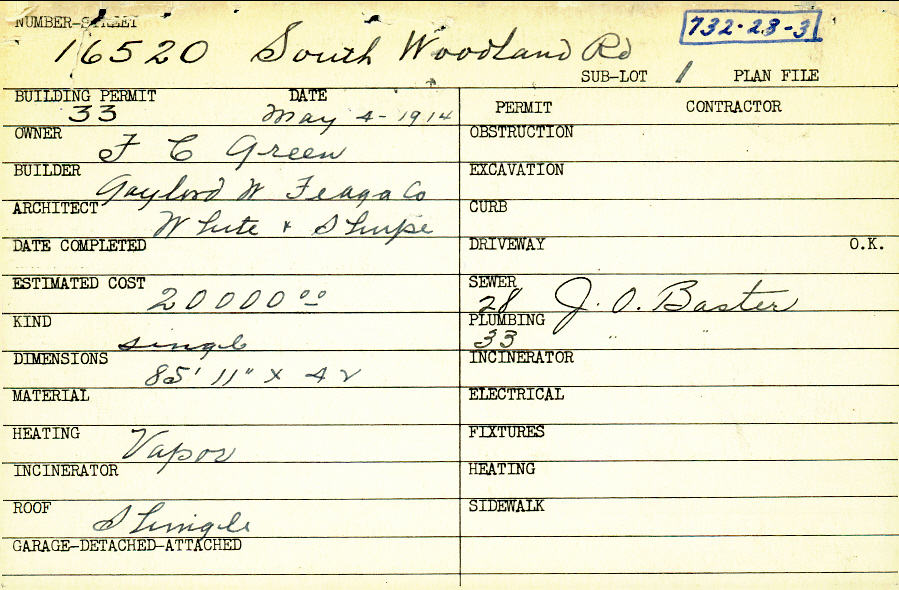 NUMBER-STREET
16520 South Woodland Rd
732-23-3
SUB-LOT 1 PLAN FILE
BUILDING PERMIT DATE
33 May 4-1914
OWNER
F C Green
BUILDER
Gaylord W Feaga Co
ARCHITECT
White & Shupe
DATE COMPLETED
ESTIMATED COST
20000 00
KIND
single
DIMENSIONS
85' 11" x 42
MATERIAL
HEATING
Vapor
INCINERATOR
ROOF
Shingle
GARAGE-DETACHED-ATTACHED
PERMIT CONTRACTOR
OBSTRUCTION
EXCAVATION
CURB
DRIVEWAY O.K.
SEWER
28 J. O. Baster
PLUMBING
33 " "
INCINERATOR
ELECTRICAL
FIXTURES
HEATING
SIDEWALK